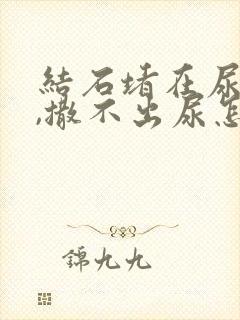 結石堵在尿
,撒不出尿怎
錦九九